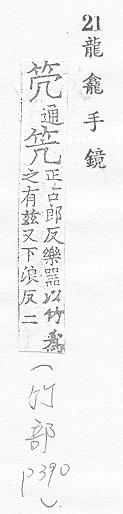 21 龍龕手鏡
通笐正古郎反樂器以竹爲
之有兹又下浪反二
(竹部 p390)